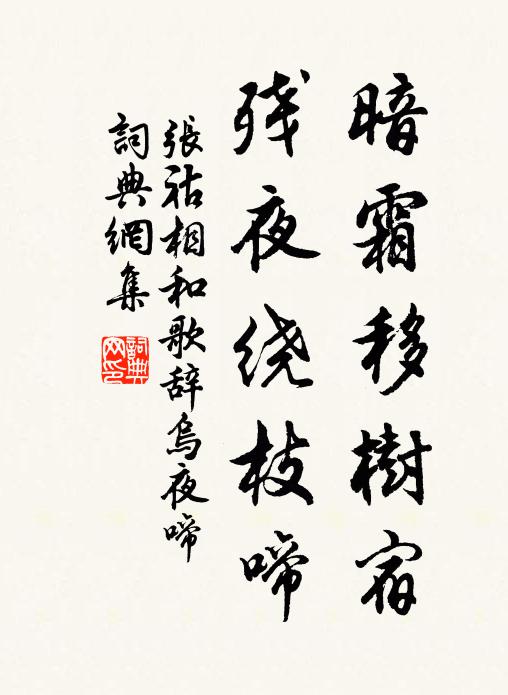 暗霜移樹宿
残夜绕枝啼
張祜相和歌辞烏夜啼
詞典網集
詞典网印